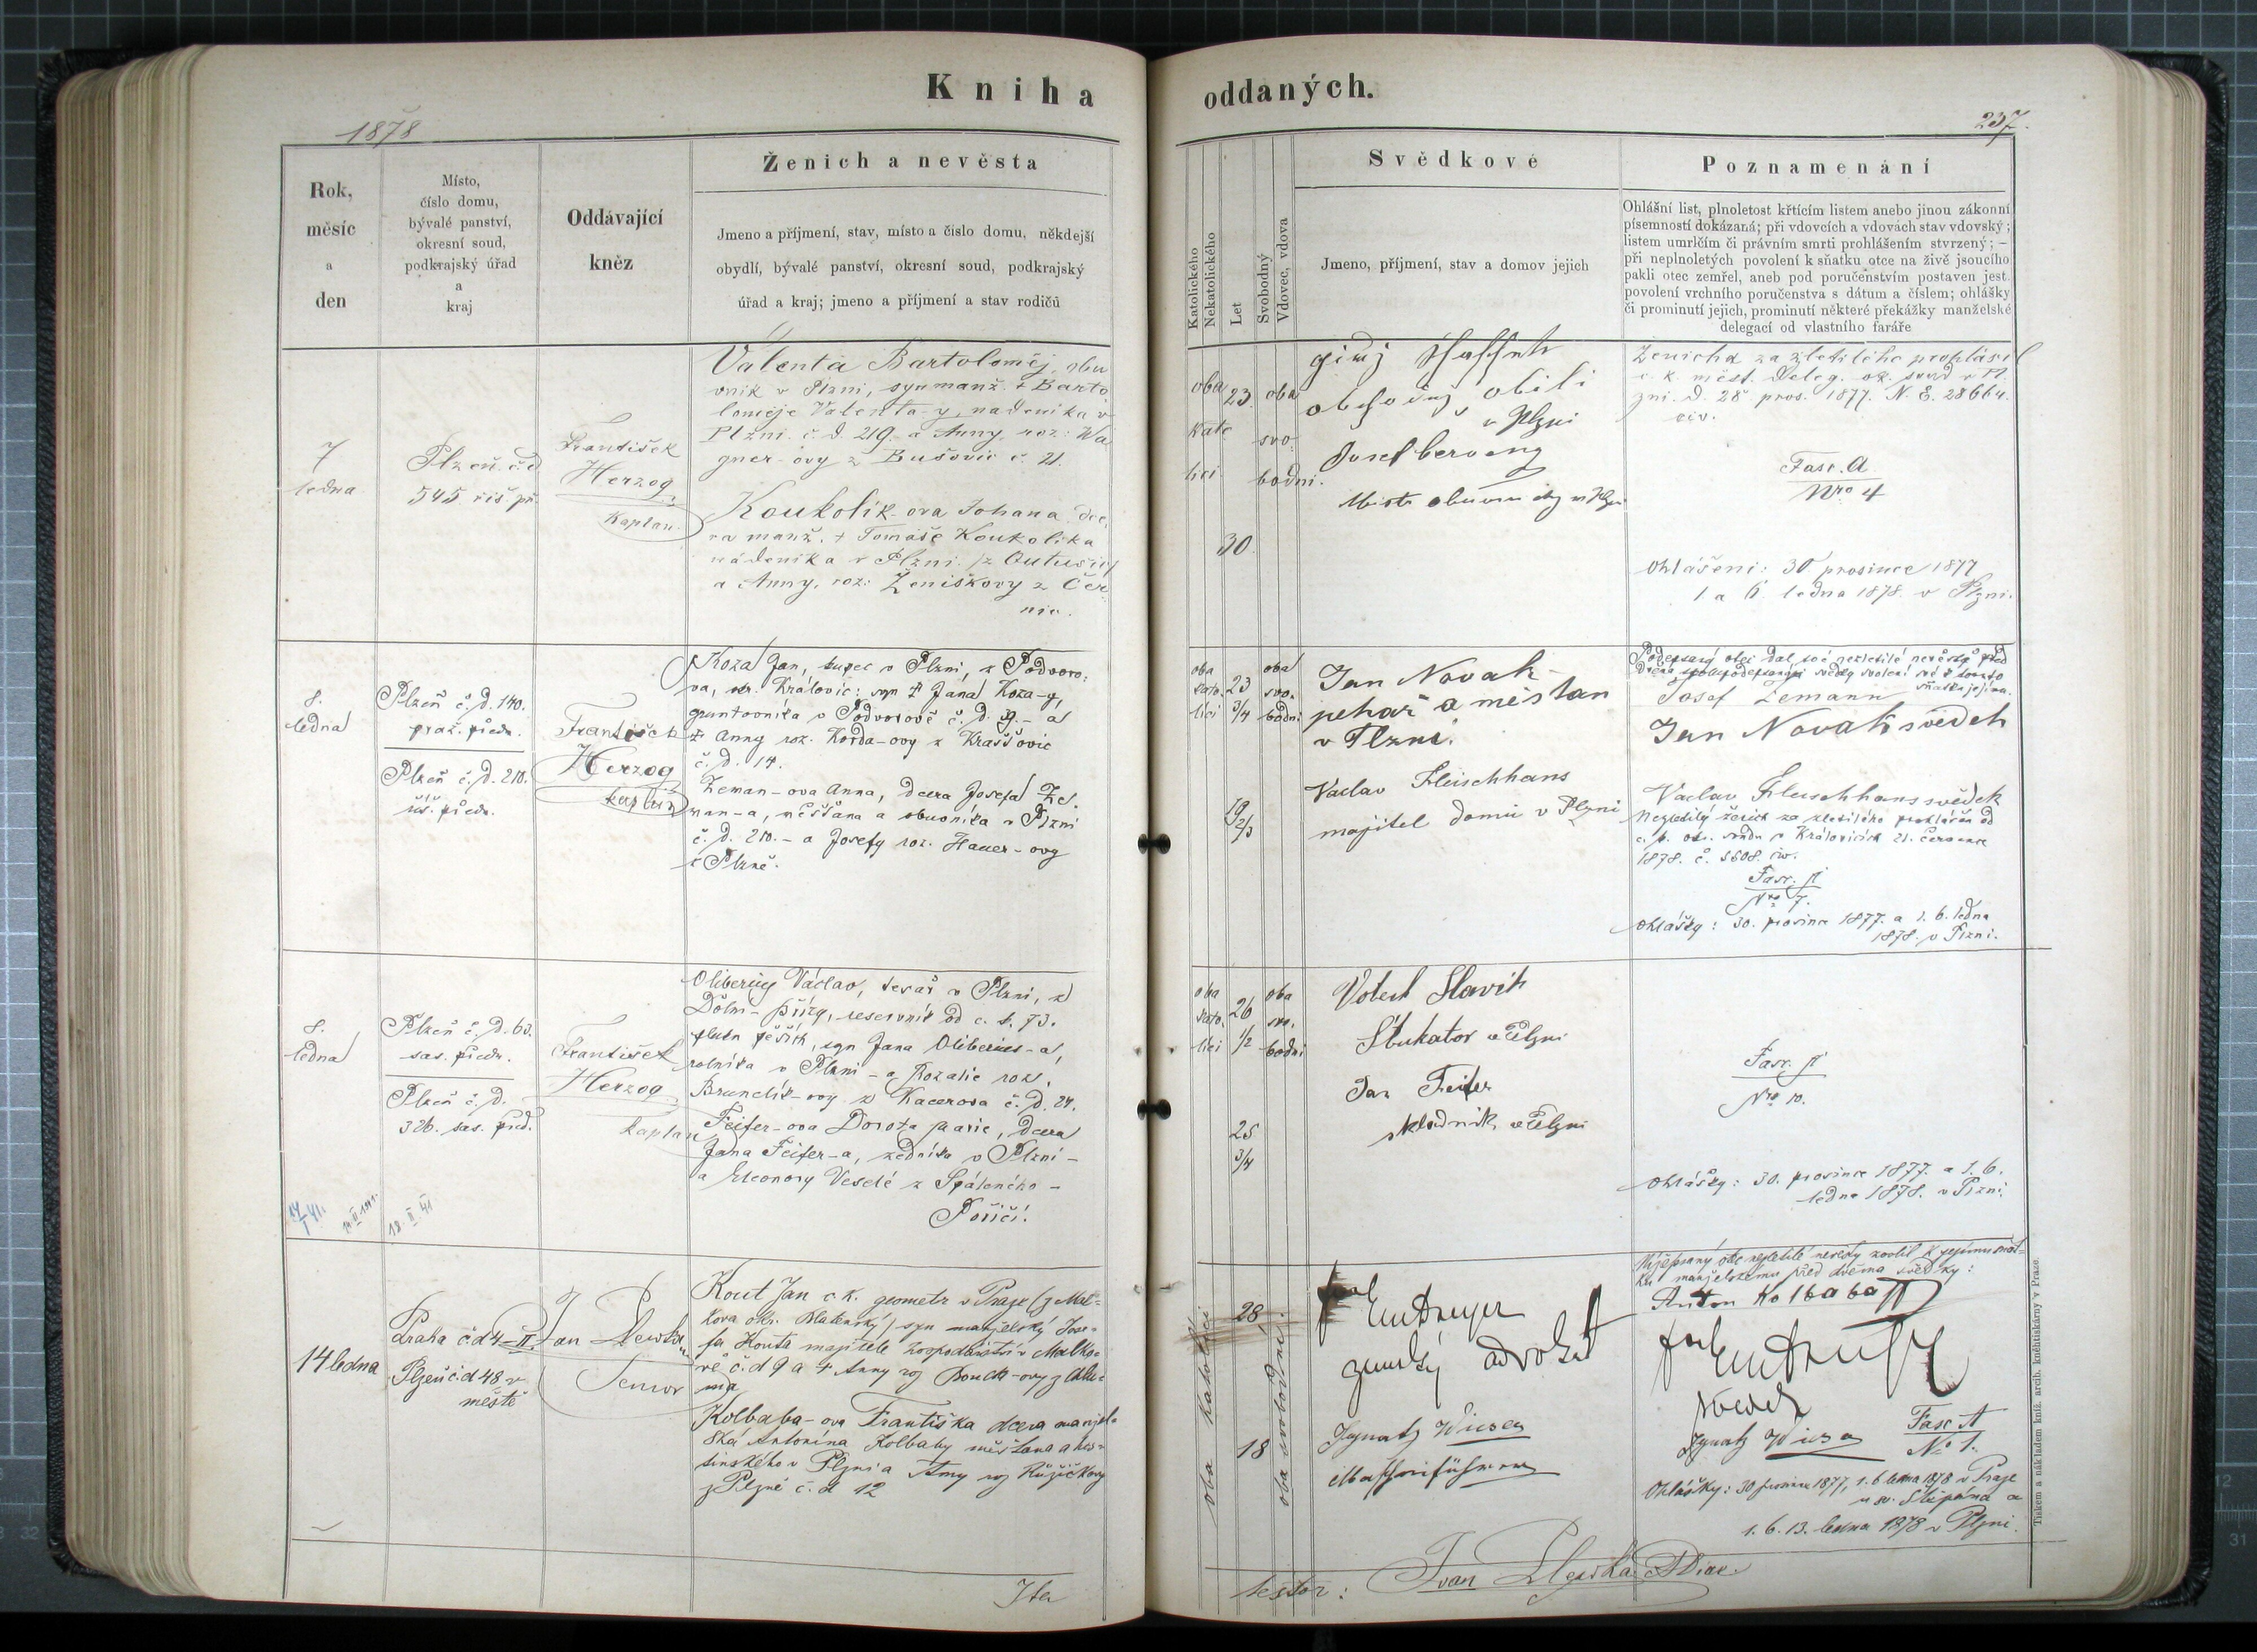 Kniha
oddaných.
1878
237.
Rok,
měsíc
a
den
Místo,
číslo domu,
bývalé panství,
okresní soud,
podkrajský úřad
a
kraj
Oddávající
kněz
Ženich a nevěsta
Jmeno a příjmení, stav, místo a číslo domu, někdejší
obydlí, bývalé panství, okresní soud, podkrajský
úřad a kraj; jmeno a příjmení a stav rodičů
Katolického
Nekatolického
Let
Svobodný
Vdovec, vdova
Svědkové
Jmeno, příjmení, stav a domov jejich
Poznamenání
Ohlášní list, plnoletost křtícím listem anebo jinou zákonní
písemností dokázaná; při vdovcích a vdovách stav vdovský;
listem umrlčím či právním smrti prohlášením stvrzený; —
při neplnoletých povolení k sňatku otce na živě jsoucího
pakli otec zemřel, aneb pod poručenstvím postaven jest
povolení vrchního poručenstva s dátum a číslem; ohlášky
či prominutí jejich, prominutí některé překážky manželské
delegací od vlastního faráře
7
ledna
Plzeň č. d.
545 říš. př.
František
Herzog
Kaplan
Valenta Bartoloměj, obu
vník v Plzni, syn manž. + Barto
loměje Valenta-y, nadeníka v
Plzni č. d. 219. a Anny, roz: Wa
gner-ovy z Bušovic č. 21.
Koukolík-ova Johana, dce
ra manž. + Tomáše Koukolíka
nádeníka v Plzni
a Anny, roz: Ženíškovy z Čer
nic.
oba
kato
lici
23
30
oba
svo
bodni.
v Plzni
Josef
Mistr obuvnický v Plzni
Ženicha za zletilého prohlásil
c. k. měst. deleg. ok. soud v Pl
zni. d. 28 pros. 1877. N. E. 28664.
civ.
Fasc. A
Nro 4
Ohlášení: 30 prosince 1877
1. a 6. ledna 1878. v Plzni.
8.
ledna
Plzeň č. d. 140.
praž. předm.
Plzeň č. d. 210.
říš. předm.
František
Herzog
kaplan
Koza Jan, kupec v Plzni, z Podvoro-
va, okr. Královic: syn + Jana Koza-y,
gruntovníka v Podvorově č. d. 9. – a
+ Anny roz. Korda-ovy z Kraššovic
č. d. 14.
Zeman-ova Anna, dcera Josefa Ze-
man-a, měšťana a obuvníka v Plzni
č. d. 210. – a Josefy roz. Hauer-ovy
z Plzně.
oba
kato.
líci
23
3/4
19
2/3
oba
svo.
bodni
Jan Novak
pekař a měštan
v Plzni.
Vaclav Fleischhans
majitel domu v Plzni
Podepsaný otec dal své nezletilé nevěstě před
svědky svolení své k tomuto
sňatku jejímu.
Josef Zemann
Jan Novak svědek
Vaclav Fleischhans svědek
Nezletilý ženich za zletilého prohlášen od
c. k. okr. soudu v Královicích 21. července
1878. č. 5608. civ.
Fasc. A
Nro 7.
Ohlášky: 30. prosince 1877. a 1. 6. ledna
1878. v Plzni.
8.
ledna
Plzeň č. d. 63.
sas. předm.
Plzeň č. d.
326. sas. před.
František
Herzog
kaplan
Oliberius Václav, tesař v Plzni, z
Dolní-, reservník od c. k. 73.
pluku pěších, syn Jana Oliberius-a,
rolníka v Plzni – a Rozalie roz.
Brunclík-ovy z Kacerova č. d. 24.
Feifer-ova Dorota Marie, dcera
Jana Feifer-a, zedníka v Plzni –
a Eleonory Veselé z Spáleného –
Poříčí.
oba
kato.
líci
26
1/2
25
3/4
oba
svo.
bodni
Slavík
Štukator v Plzni
Jan Feifer
skladník v Plzni
Fasc. A
Nro 10.
Ohlášky: 30. prosince 1877. a 1. 6.
ledna 1878. v Plzni.
18. II 41
14 ledna
Praha č d 4–II.
Plzeň č. d 48 v
městě
Jan
Senior
Kout Jan c. k. geometr v Praze (z Mal-
kova okr. Blatenský) syn manželský Jose-
fa Kouta majitele hospodářství v Malko-
vě č. d 9 a + Anny roz
Kolbaba-ova Františka dcera manžel-
ská Antonína Kolbaby měšťana a hos-
tinského v Plzni a Anny roz Růžičkovy
z Plzně č. d 12
oba katolíci
28
18
oba svobodní.
zemský advokát
Ignatz
Nížepsaný otec nezletilé nevěsty svolil k jejímu sňat-
ku manželskému před dvěma svědky:
Anton Kolbaba
svědek
Ignatz
Fasc A
No 1.
Ohlášky: 30 prosince 1877, 1. 6 ledna 1878 v Praze
u sv. Štěpána a
1. 6. 13. ledna 1878 v Plzni.
Tiskem a nákladem kníž. arcib. kněhtiskárny v Praze.